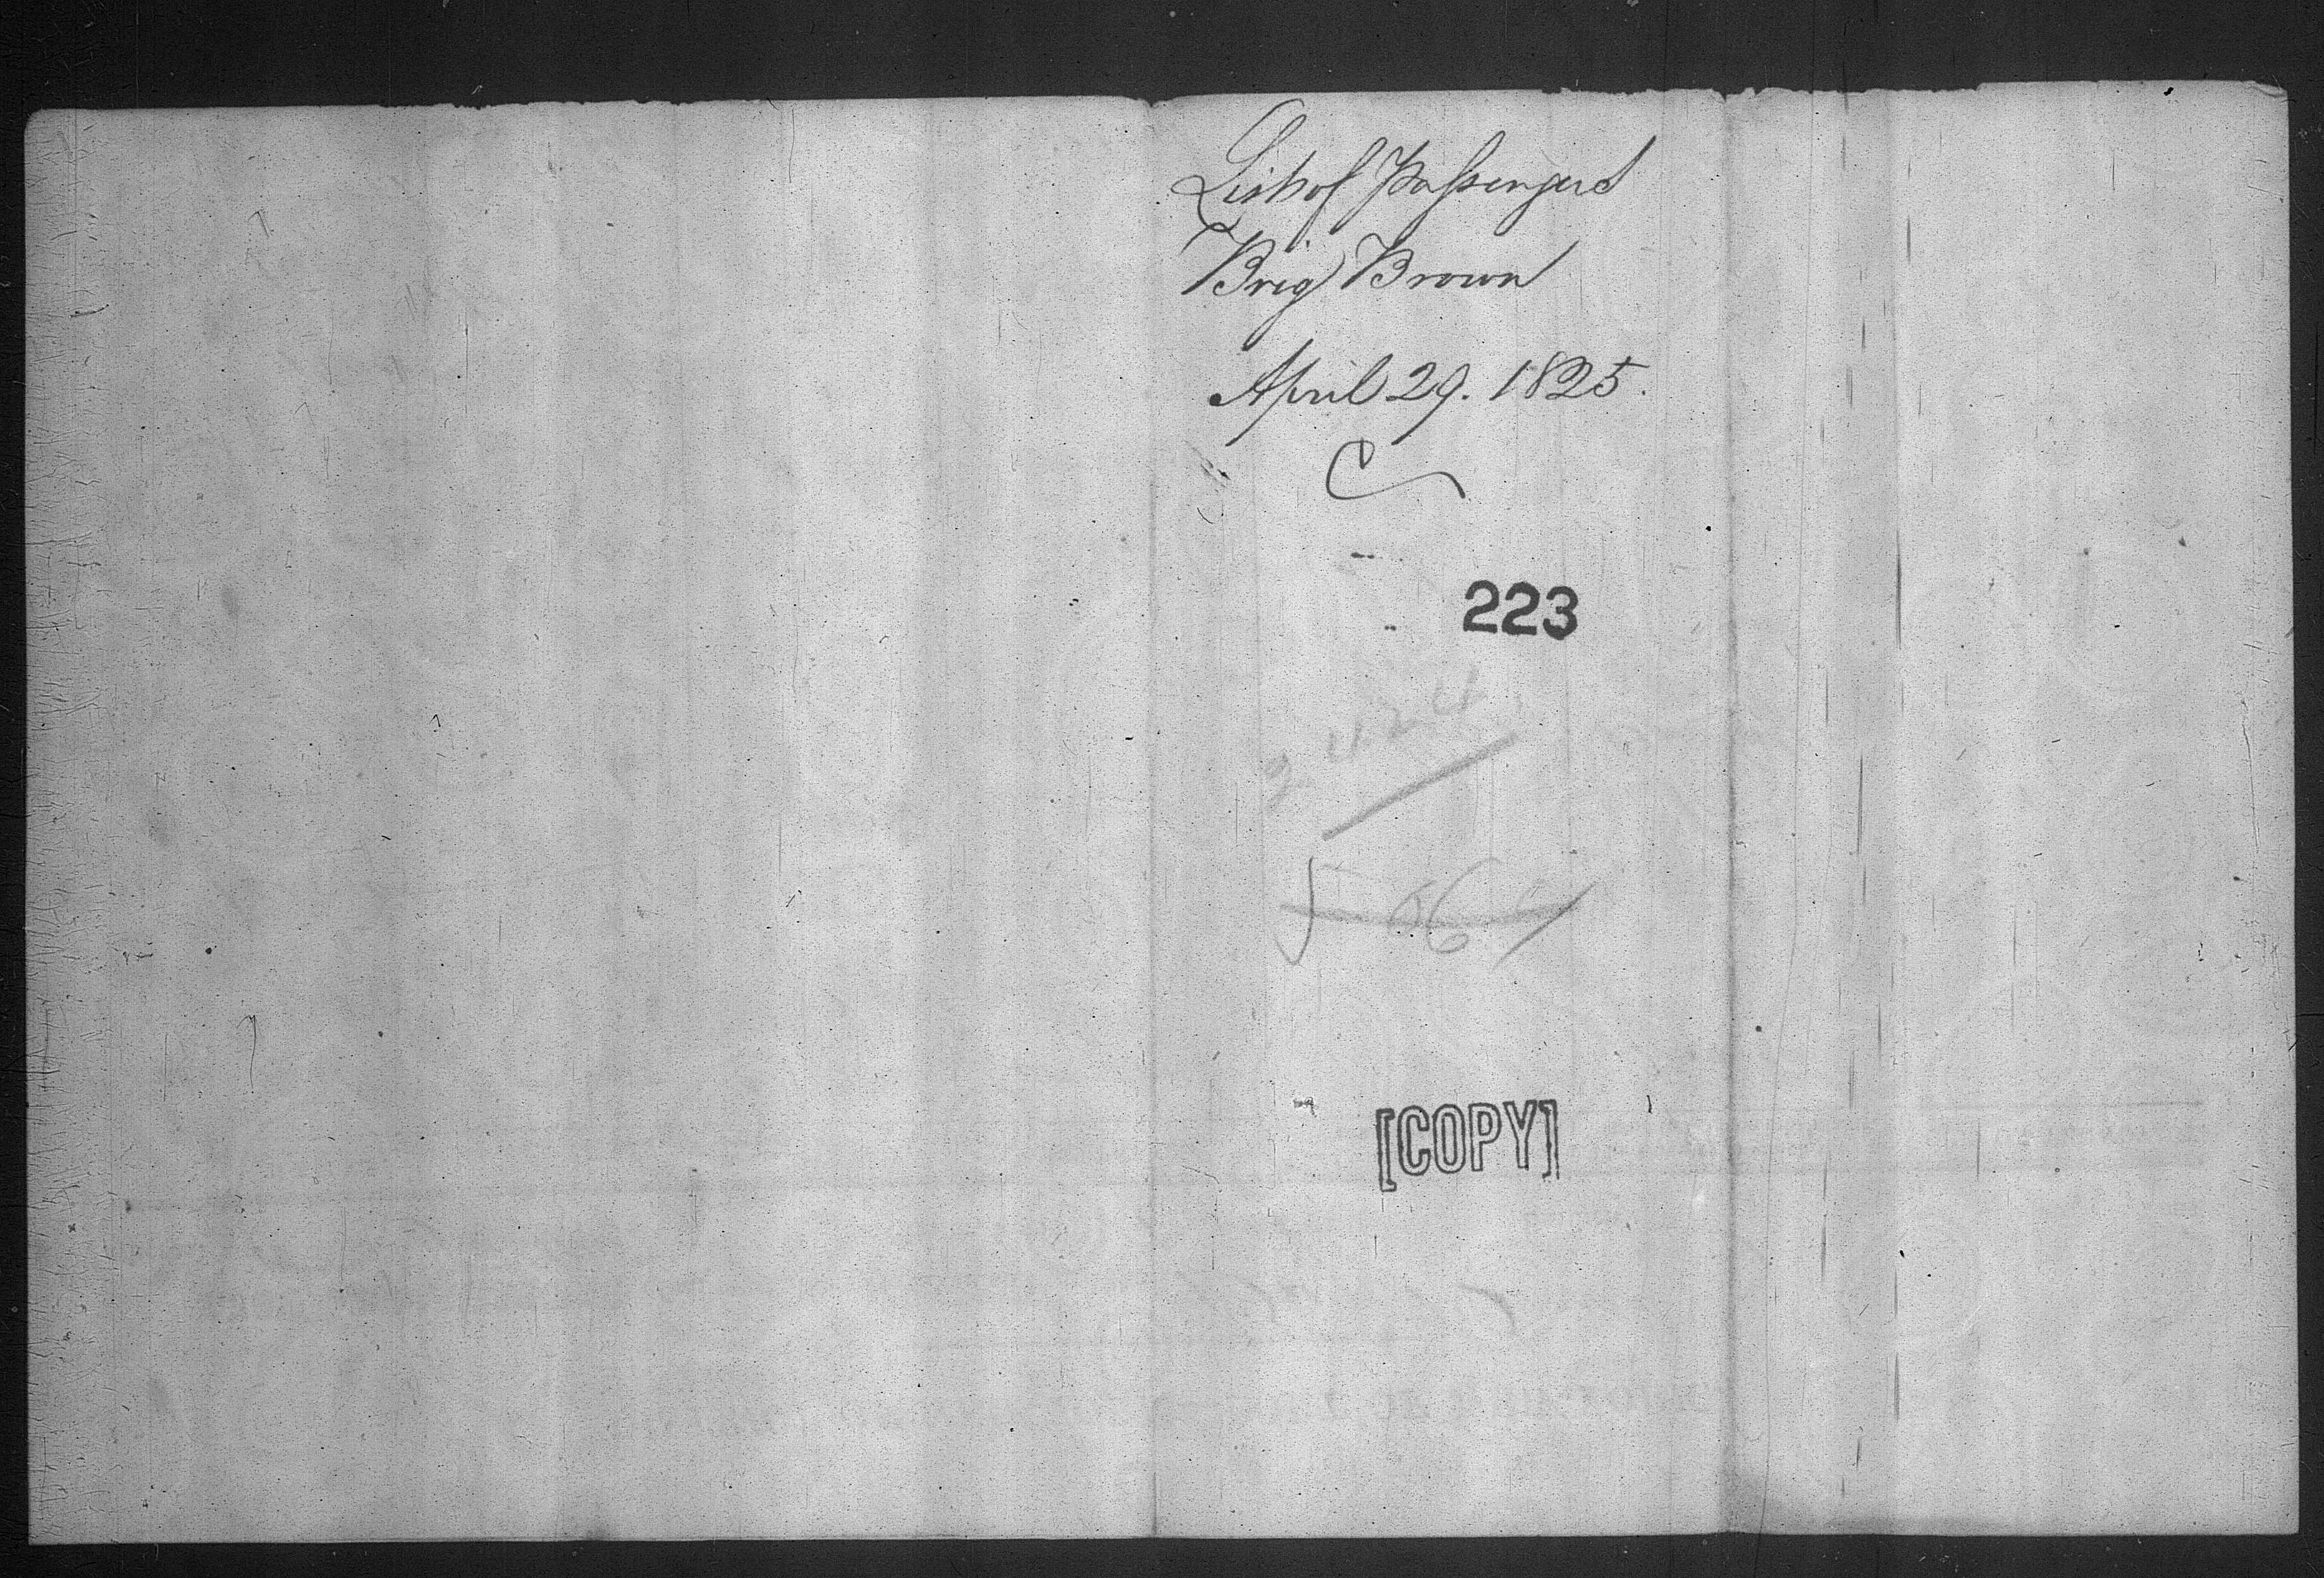 List of Passengers
Brig Brown
April 29. 1825.
C
223
[COPY]